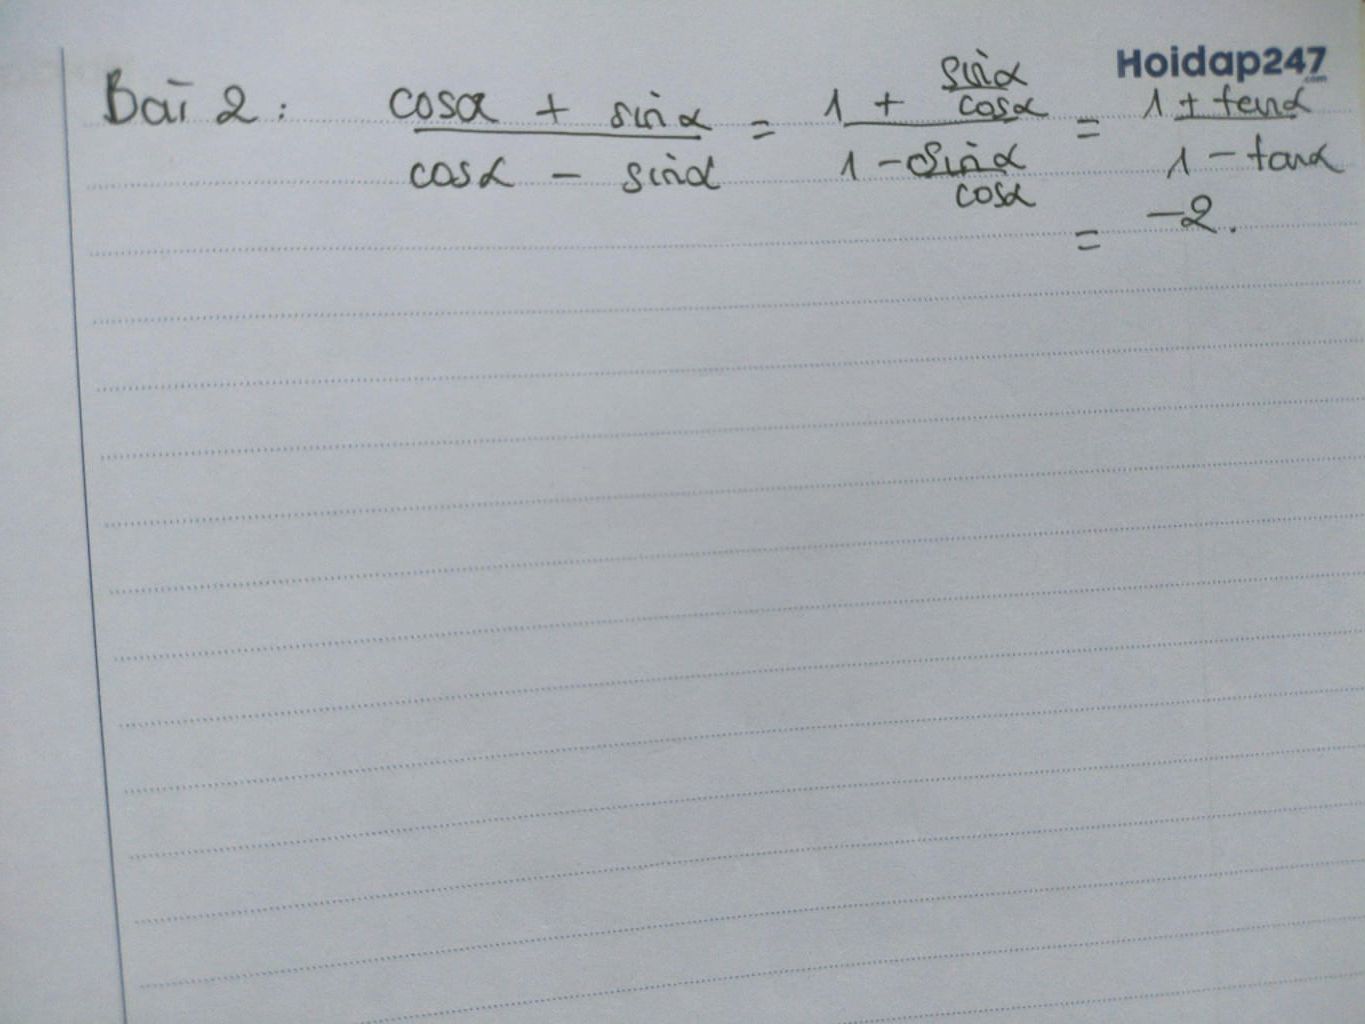 Hoidap247
.com
Bài 2: (cosα + sinα)/(cosα - sinα) = (1 + sinα/cosα)/(1 - sinα/cosα) = (1 + tanα)/(1 - tanα)
= -2.